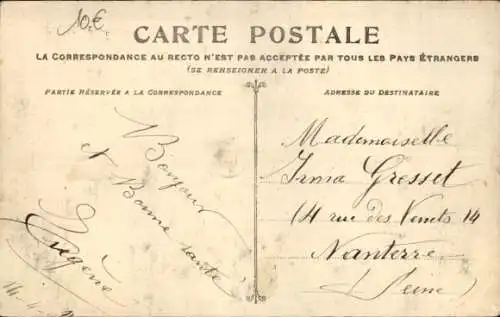 10.€
CARTE POSTALE
LA CORRESPONDANCE AU RECTO N'EST PAS ACCEPTÉE PAR TOUS LES PAYS ÉTRANGERS
(SE RENSEIGNER A LA POSTE)
PARTIE RÉSERVÉE A LA CORRESPONDANCE
Bonjour
et Bonne santé
Eugène
ADRESSE DU DESTINATAIRE
Mademoiselle
Irma Gresset
14 rue des Venets 14
Nanterre
(Seine)